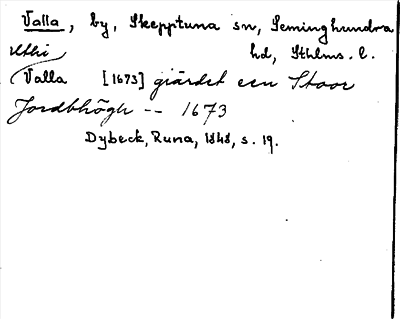 Valla, by, Skepptuna sn, Seminghundra
hd, Sthlms. l.
Uthi
Valla [1673] giärdet een Stoor
Jordbhögh -- 1673
Dybeck, Runa, 1848, s. 19.